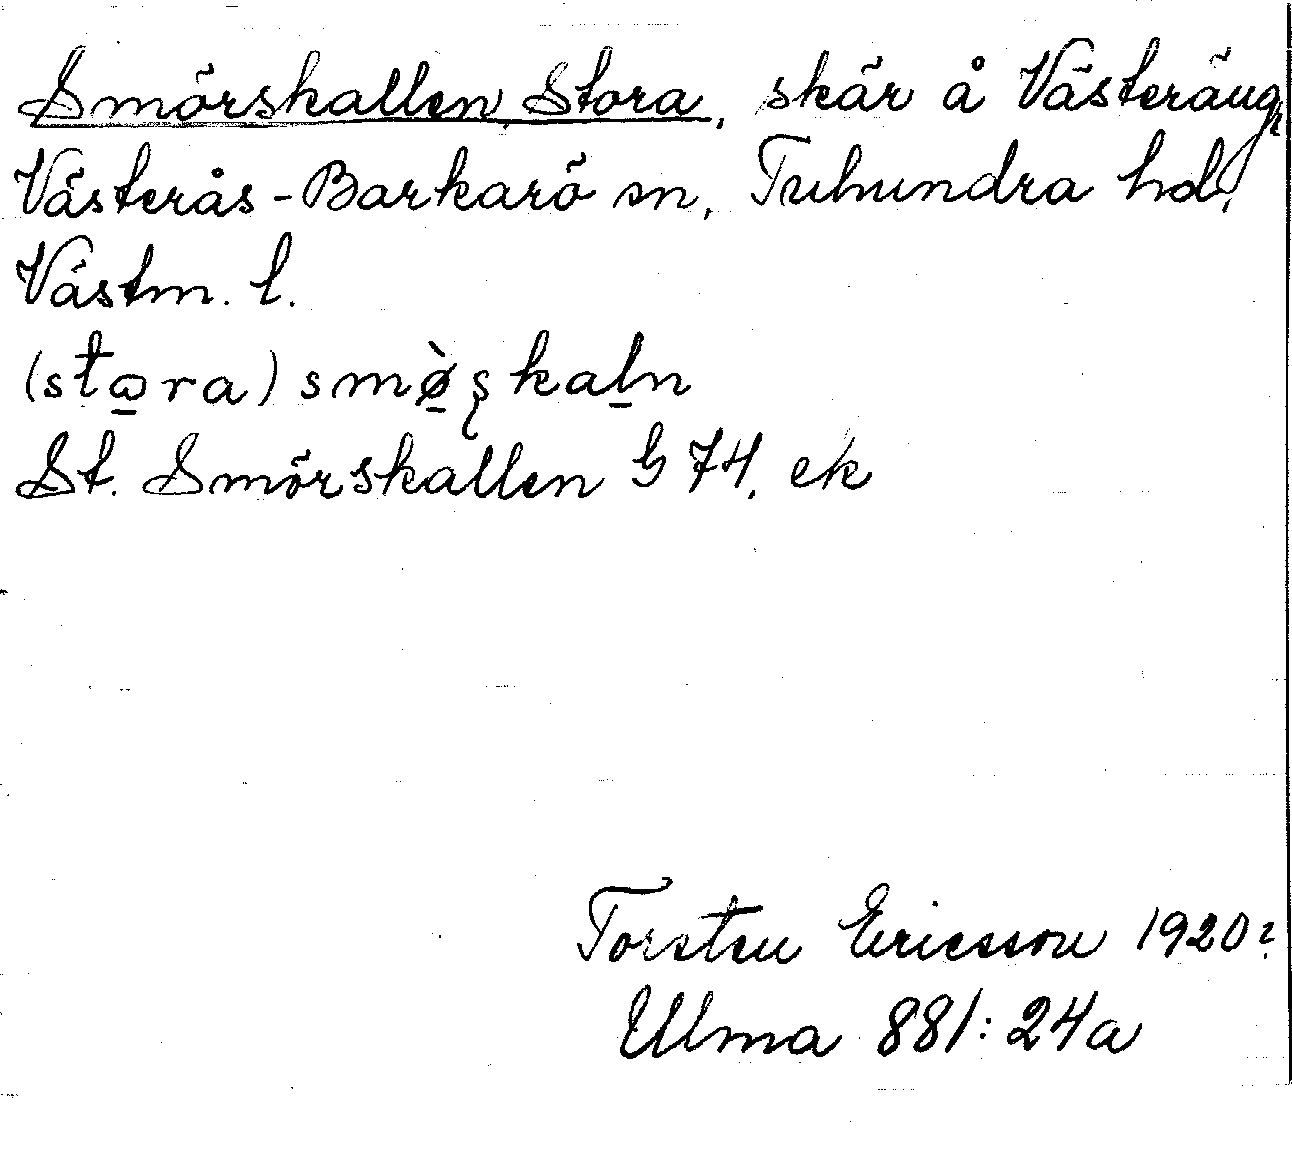 Smörskallen, Stora, skär å Västeräng,
Västerås-Barkarö sn, Tuhundra hd,
Västm. l.
(stɷ̠ra) smø̠̀ʂkal̠n
St. Smörskallen G 74, ek
Torsten Ericsson 1920?
Ulma 881:24a